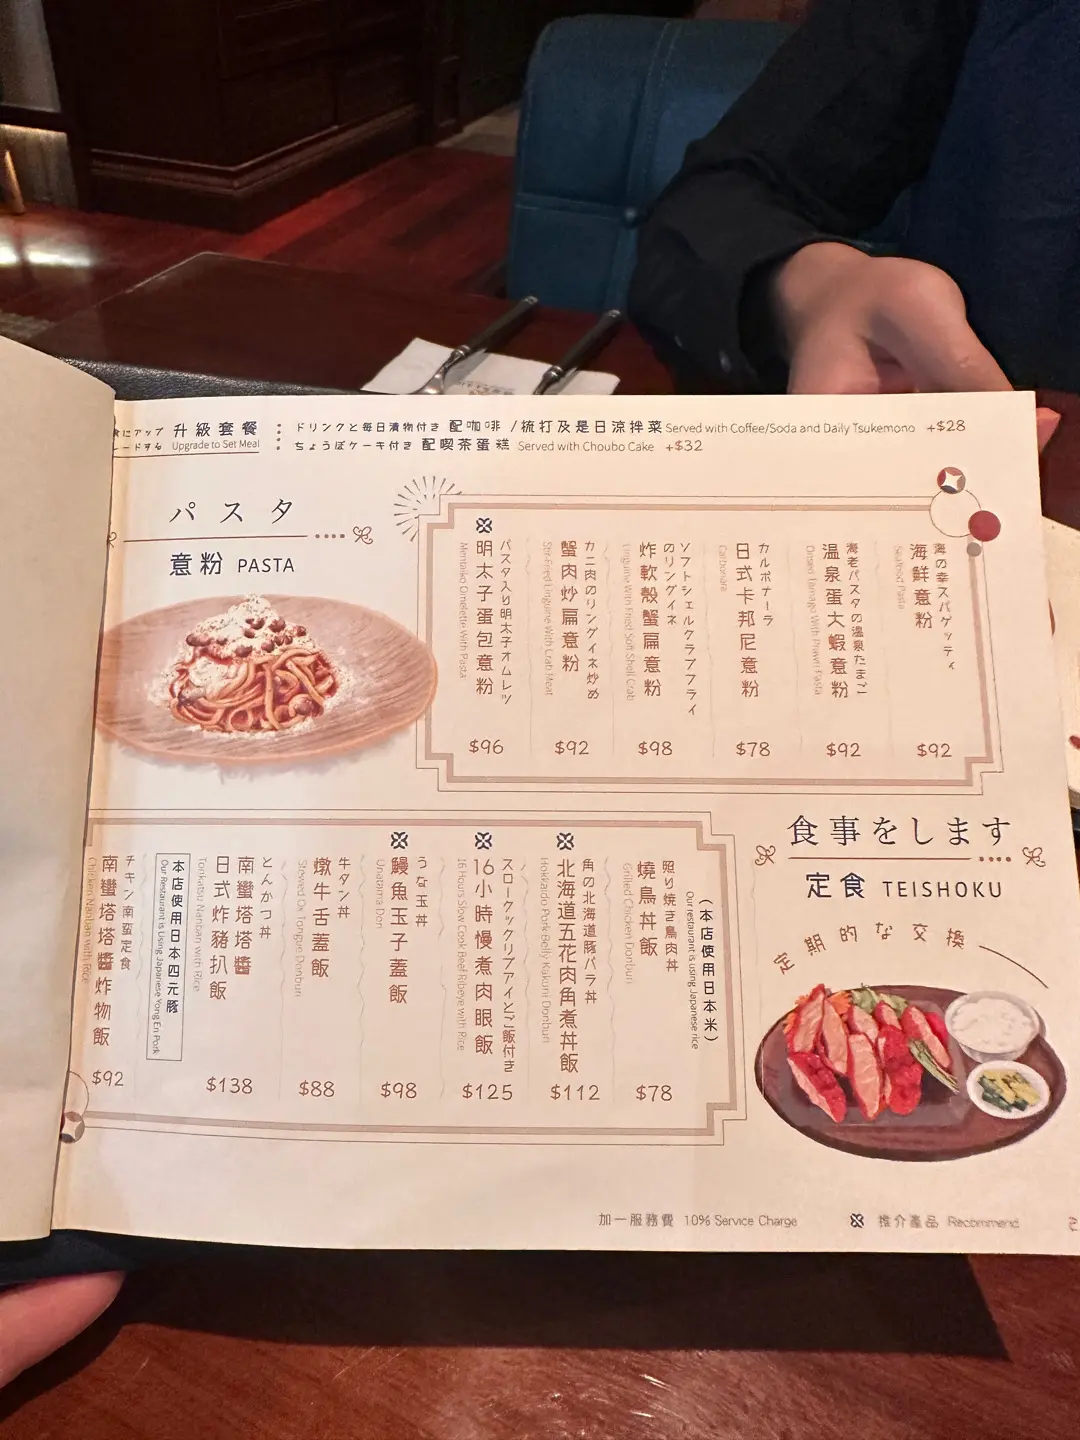 食にアップ
レードする
升級套餐
Upgrade to Set Meal
ドリンクと毎日漬物付き 配咖啡 /梳打及是日涼拌菜 Served with Coffee/Soda and Daily Tsukemono +$28
ちょうぼケーキ付き 配喫茶蛋糕 Served with Choubo Cake +$32
パスタ
意粉 PASTA
海の幸スパゲッティ
海鮮意粉
Seafood Pasta
$92
海老パスタの温泉たまご
溫泉蛋大蝦意粉
Onsen Tamago With Prawn Pasta
$92
カルボナーラ
日式卡邦尼意粉
Carbonara
$78
ソフトシェルクラブフライ
のリングイネ
炸軟殼蟹扁意粉
Linguine With Fried Soft Shell Crab
$98
カニ肉のリングイネ炒め
蟹肉炒扁意粉
Stir-Fried Linguine With Crab Meat
$92
パスタ入り明太子オムレツ
明太子蛋包意粉
Mentaiko Omelette With Pasta
$96
食事をします
定食 TEISHOKU
定期的な交換
(本店使用日本米)
Our restaurant is using Japanese rice
照り焼き鳥肉丼
燒鳥丼飯
Grilled Chicken Donburi
$78
角の北海道豚バラ丼
北海道五花肉角煮丼飯
Hokkaido Pork Belly Kakuni Donburi
$112
スロークックリブアイとご飯付き
16小時慢煮肉眼飯
16 Hours Slow Cook Beef Ribeye with Rice
$125
うな玉丼
鰻魚玉子蓋飯
Unatama Don
$98
牛タン丼
燉牛舌蓋飯
Stewed Ox Tongue Donburi
$88
とんかつ丼
南蠻塔塔醬
日式炸豬扒飯
Tonkatsu Nanban with Rice
$138
本店使用日本四元豚
Our Restaurant is Using Japanese Yong En Pork
チキン南蛮定食
南蠻塔塔醬炸物飯
Chicken Nanban with Rice
$92
加一服務費 10% Service Charge
推介產品 Recommend